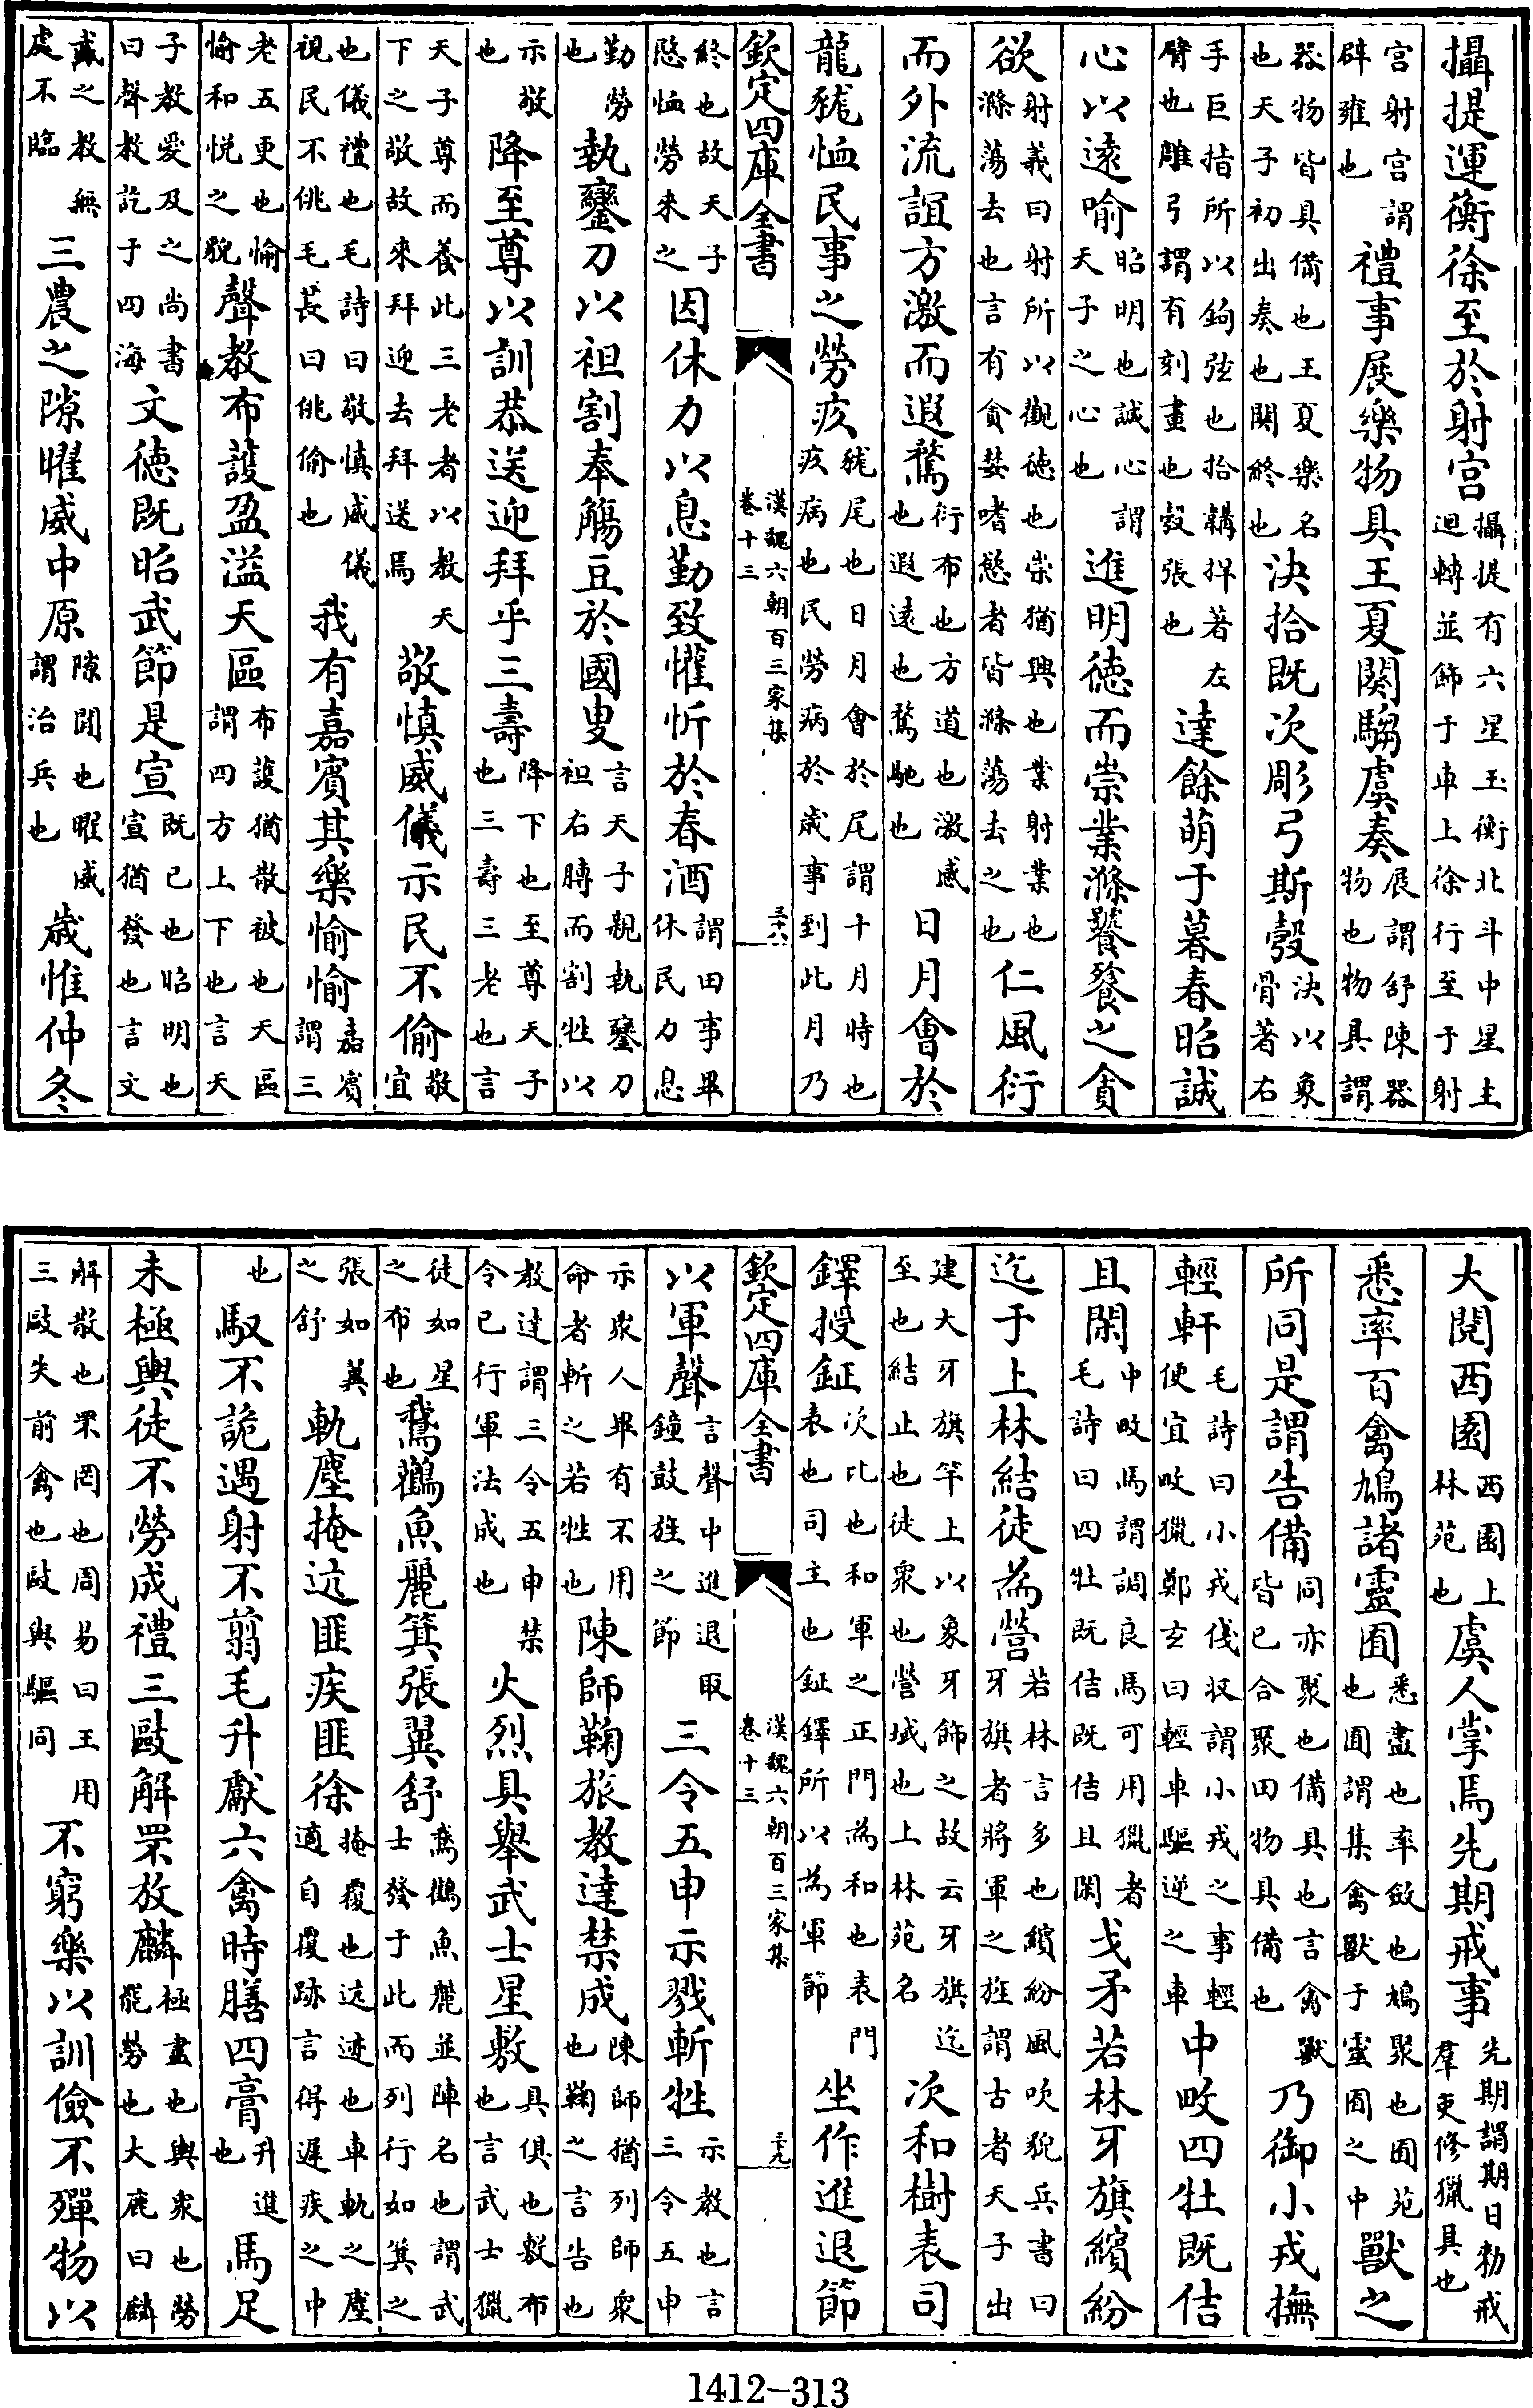 攝提運衡徐至於射宫攝提有六星玉衡北斗中星主迴轉並飾于車上徐行至于射
宫射宫謂辟雍也禮事展樂物具王夏闋騶虞奏展謂舒陳器物也物具謂
器物皆具備也王夏樂名也天子初出奏也闋終也決拾既次彫弓斯彀決以象骨著右
手巨指所以鉤弦也拾韝捍著左臂也雕弓謂有刻畫也彀張也達餘萌于暮春昭誠
心以遠喻昭明也誠心謂天子之心也進明徳而崇業滌饕餮之貪
欲射義曰射所以觀徳也崇猶興也業射業也滌蕩去也言有貪婪嗜慾者皆滌蕩去之也仁風衍
而外流誼方激而遐騖衍布也方道也激感也遐遠也騖馳也日月會於
龍狵恤民事之勞疚狵尾也日月會於尾謂十月時也疚病也民勞病於歳事到此月乃
欽定四庫全書　漢魏六朝百三家集卷十三　三十八
終也故天子愍恤勞來之因休力以息勤致懽忻於春酒謂田事畢休民力息
勤勞也執鑾刀以袒割奉觴豆於國叟言天子親執鑾刀袒右膊而割牲以
示敬也降至尊以訓恭送迎拜乎三壽降下也至尊天子也三壽三老也言
天子尊而養此三老者以教天下之敬故來拜迎去拜送焉敬慎威儀示民不偷敬宜
也儀禮也毛詩曰敬慎威儀視民不佻毛萇曰佻偷也我有嘉賓其樂愉愉嘉賓謂三
老五更也愉愉和悅之貌聲教布護盈溢天區布護猶散被也天區謂四方上下也言天
子教愛及之尚書曰聲教訖于四海文徳既昭武節是宣既已也昭明也宣猶發也言文
威之教無處不臨三農之隙曜威中原隙閒也曜威謂治兵也歳惟仲冬
大閱西園西園上林苑也虞人掌焉先期戒事先期謂期日勅戒羣吏修獵具也
悉率百禽鳩諸靈囿悉盡也率斂也鳩聚也囿苑也囿謂集禽獸于靈囿之中獸之
所同是謂告備同亦聚也備具也言禽獸皆已合聚田物具備也乃御小戎撫
輕軒毛詩曰小戎俴收謂小戎之事輕便宜畋獵鄭玄曰輕車驅逆之車中畋四牡既佶
且閑中畋馬謂調良馬可用獵者毛詩曰四牡既佶既佶且閑戈矛若林牙旗繽紛
迄于上林結徒為營若林言多也繽紛風吹貌兵書曰牙旗者將軍之旌謂古者天子出
建大牙旗竿上以象牙飾之故云牙旗迄至也結止也徒衆也營域也上林苑名次和樹表司
鐸授鉦次比也和軍之正門為和也表門表也司主也鉦鐸所以為軍節坐作進退節
欽定四庫全書　漢魏六朝百三家集卷十三　三十九
以軍聲言聲中進退取鐘鼓旌之節三令五申示戮斬牲示教也言三令五申
示衆人畢有不用命者斬之若牲也陳師鞠旅教達禁成陳師猶列師衆也鞠之言告也
教達謂三令五申禁令已行軍法成也火烈具舉武士星敷具俱也敷布也言武士獵
徒如星之布也鵞鸛魚麗箕張翼舒鵞鸛魚麗並陣名也謂武士發于此而列行如箕之
張如翼之舒軌塵掩迒匪疾匪徐掩覆也迒迹也車軌之塵適自覆跡言得遲疾之中
也馭不詭遇射不翦毛升獻六禽時膳四膏升進也馬足
未極輿徒不勞成禮三毆解罘放麟極盡也輿衆也勞罷勞也大鹿曰麟
解散也罘罔也周易曰王用三毆失前禽也毆與驅同不窮樂以訓儉不殫物以
1412-313